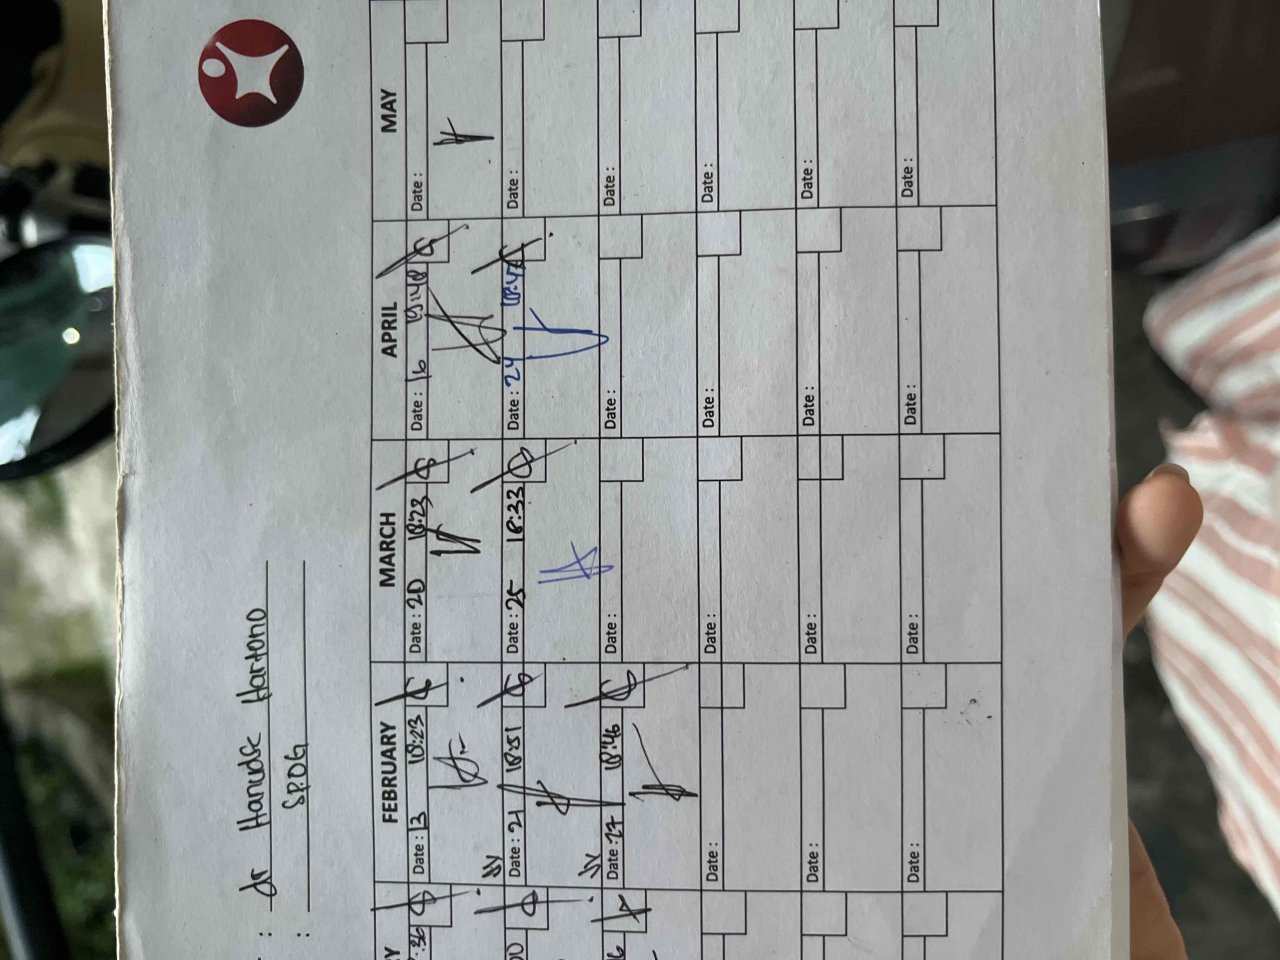 : dr Hanudse Hartono
: SPOG
FEBRUARY MARCH APRIL MAY
Date : 13 18:23 Date : 20 18:23 Date : 16 19:48 Date :
Date : 21 18:51 Date : 25 18:33 Date : 24 18:42 Date :
Date : 27 18:46 Date : Date : Date :
Date : Date : Date : Date :
Date : Date : Date : Date :
Date : Date : Date : Date :